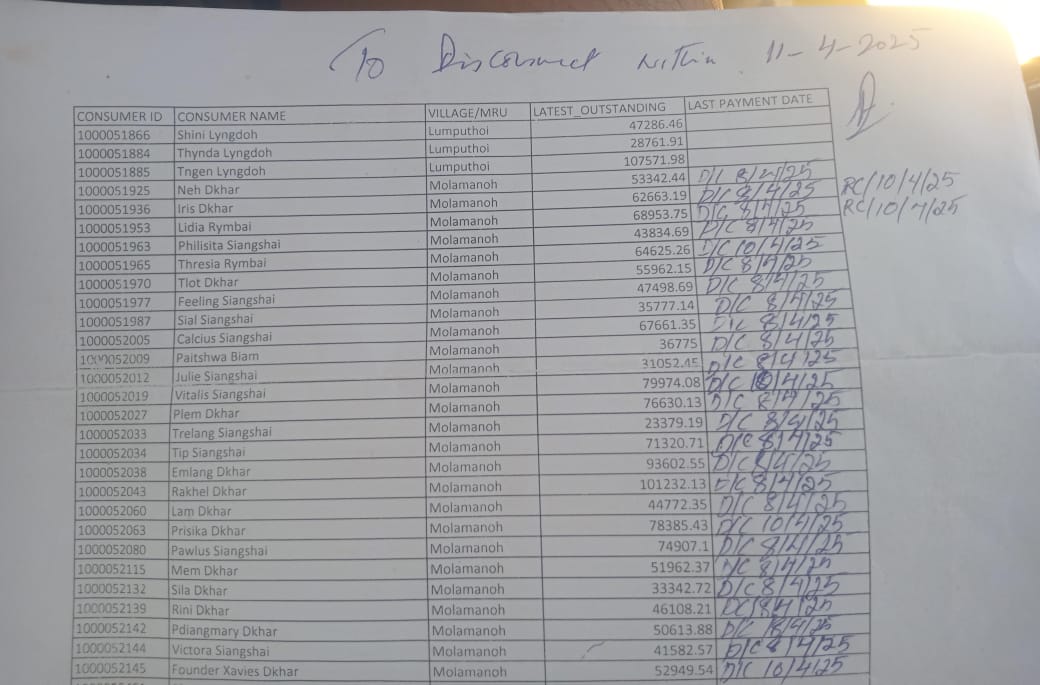 To Disconnect within 11-4-2025
CONSUMER ID CONSUMER NAME VILLAGE/MRU LATEST_OUTSTANDING LAST PAYMENT DATE
1000051866 Shini Lyngdoh Lumputhoi 47286.46
1000051884 Thynda Lyngdoh Lumputhoi 28761.91
1000051885 Tngen Lyngdoh Lumputhoi 107571.98
1000051925 Neh Dkhar Molamanoh 53342.44 D/C 8/4/25 RC/10/4/25
1000051936 Iris Dkhar Molamanoh 62663.19 D/C 8/4/25 RC/10/4/25
1000051953 Lidia Rymbai Molamanoh 68953.75 D/C 8/4/25
1000051963 Philisita Siangshai Molamanoh 43834.69 D/C 8/4/25
1000051965 Thresia Rymbai Molamanoh 64625.26 D/C 10/4/25
1000051970 Tlot Dkhar Molamanoh 55962.15 D/C 8/4/25
1000051977 Feeling Siangshai Molamanoh 47498.69 D/C 8/4/25
1000051987 Sial Siangshai Molamanoh 35777.14 D/C 8/4/25
1000052005 Calcius Siangshai Molamanoh 67661.35 D/C 8/4/25
1000052009 Paitshwa Biam Molamanoh 36775 D/C 8/4/25
1000052012 Julie Siangshai Molamanoh 31052.45 D/C 8/4/25
1000052019 Vitalis Siangshai Molamanoh 79974.08 D/C 10/4/25
1000052027 Plem Dkhar Molamanoh 76630.13 D/C 8/4/25
1000052033 Trelang Siangshai Molamanoh 23379.19 D/C 8/4/25
1000052034 Tip Siangshai Molamanoh 71320.71 D/C 8/4/25
1000052038 Emlang Dkhar Molamanoh 93602.55 D/C 8/4/25
1000052043 Rakhel Dkhar Molamanoh 101232.13 D/C 8/4/25
1000052060 Lam Dkhar Molamanoh 44772.35 D/C 8/4/25
1000052063 Prisika Dkhar Molamanoh 78385.43 D/C 10/4/25
1000052080 Pawlus Siangshai Molamanoh 74907.1 D/C 8/4/25
1000052115 Mem Dkhar Molamanoh 51962.37 D/C 8/4/25
1000052132 Sila Dkhar Molamanoh 33342.72 D/C 8/4/25
1000052139 Rini Dkhar Molamanoh 46108.21 DC/8/4/25
1000052142 Pdiangmary Dkhar Molamanoh 50613.88 D/C 8/4/25
1000052144 Victora Siangshai Molamanoh 41582.57 D/C 8/4/25
1000052145 Founder Xavies Dkhar Molamanoh 52949.54 D/C 10/4/25